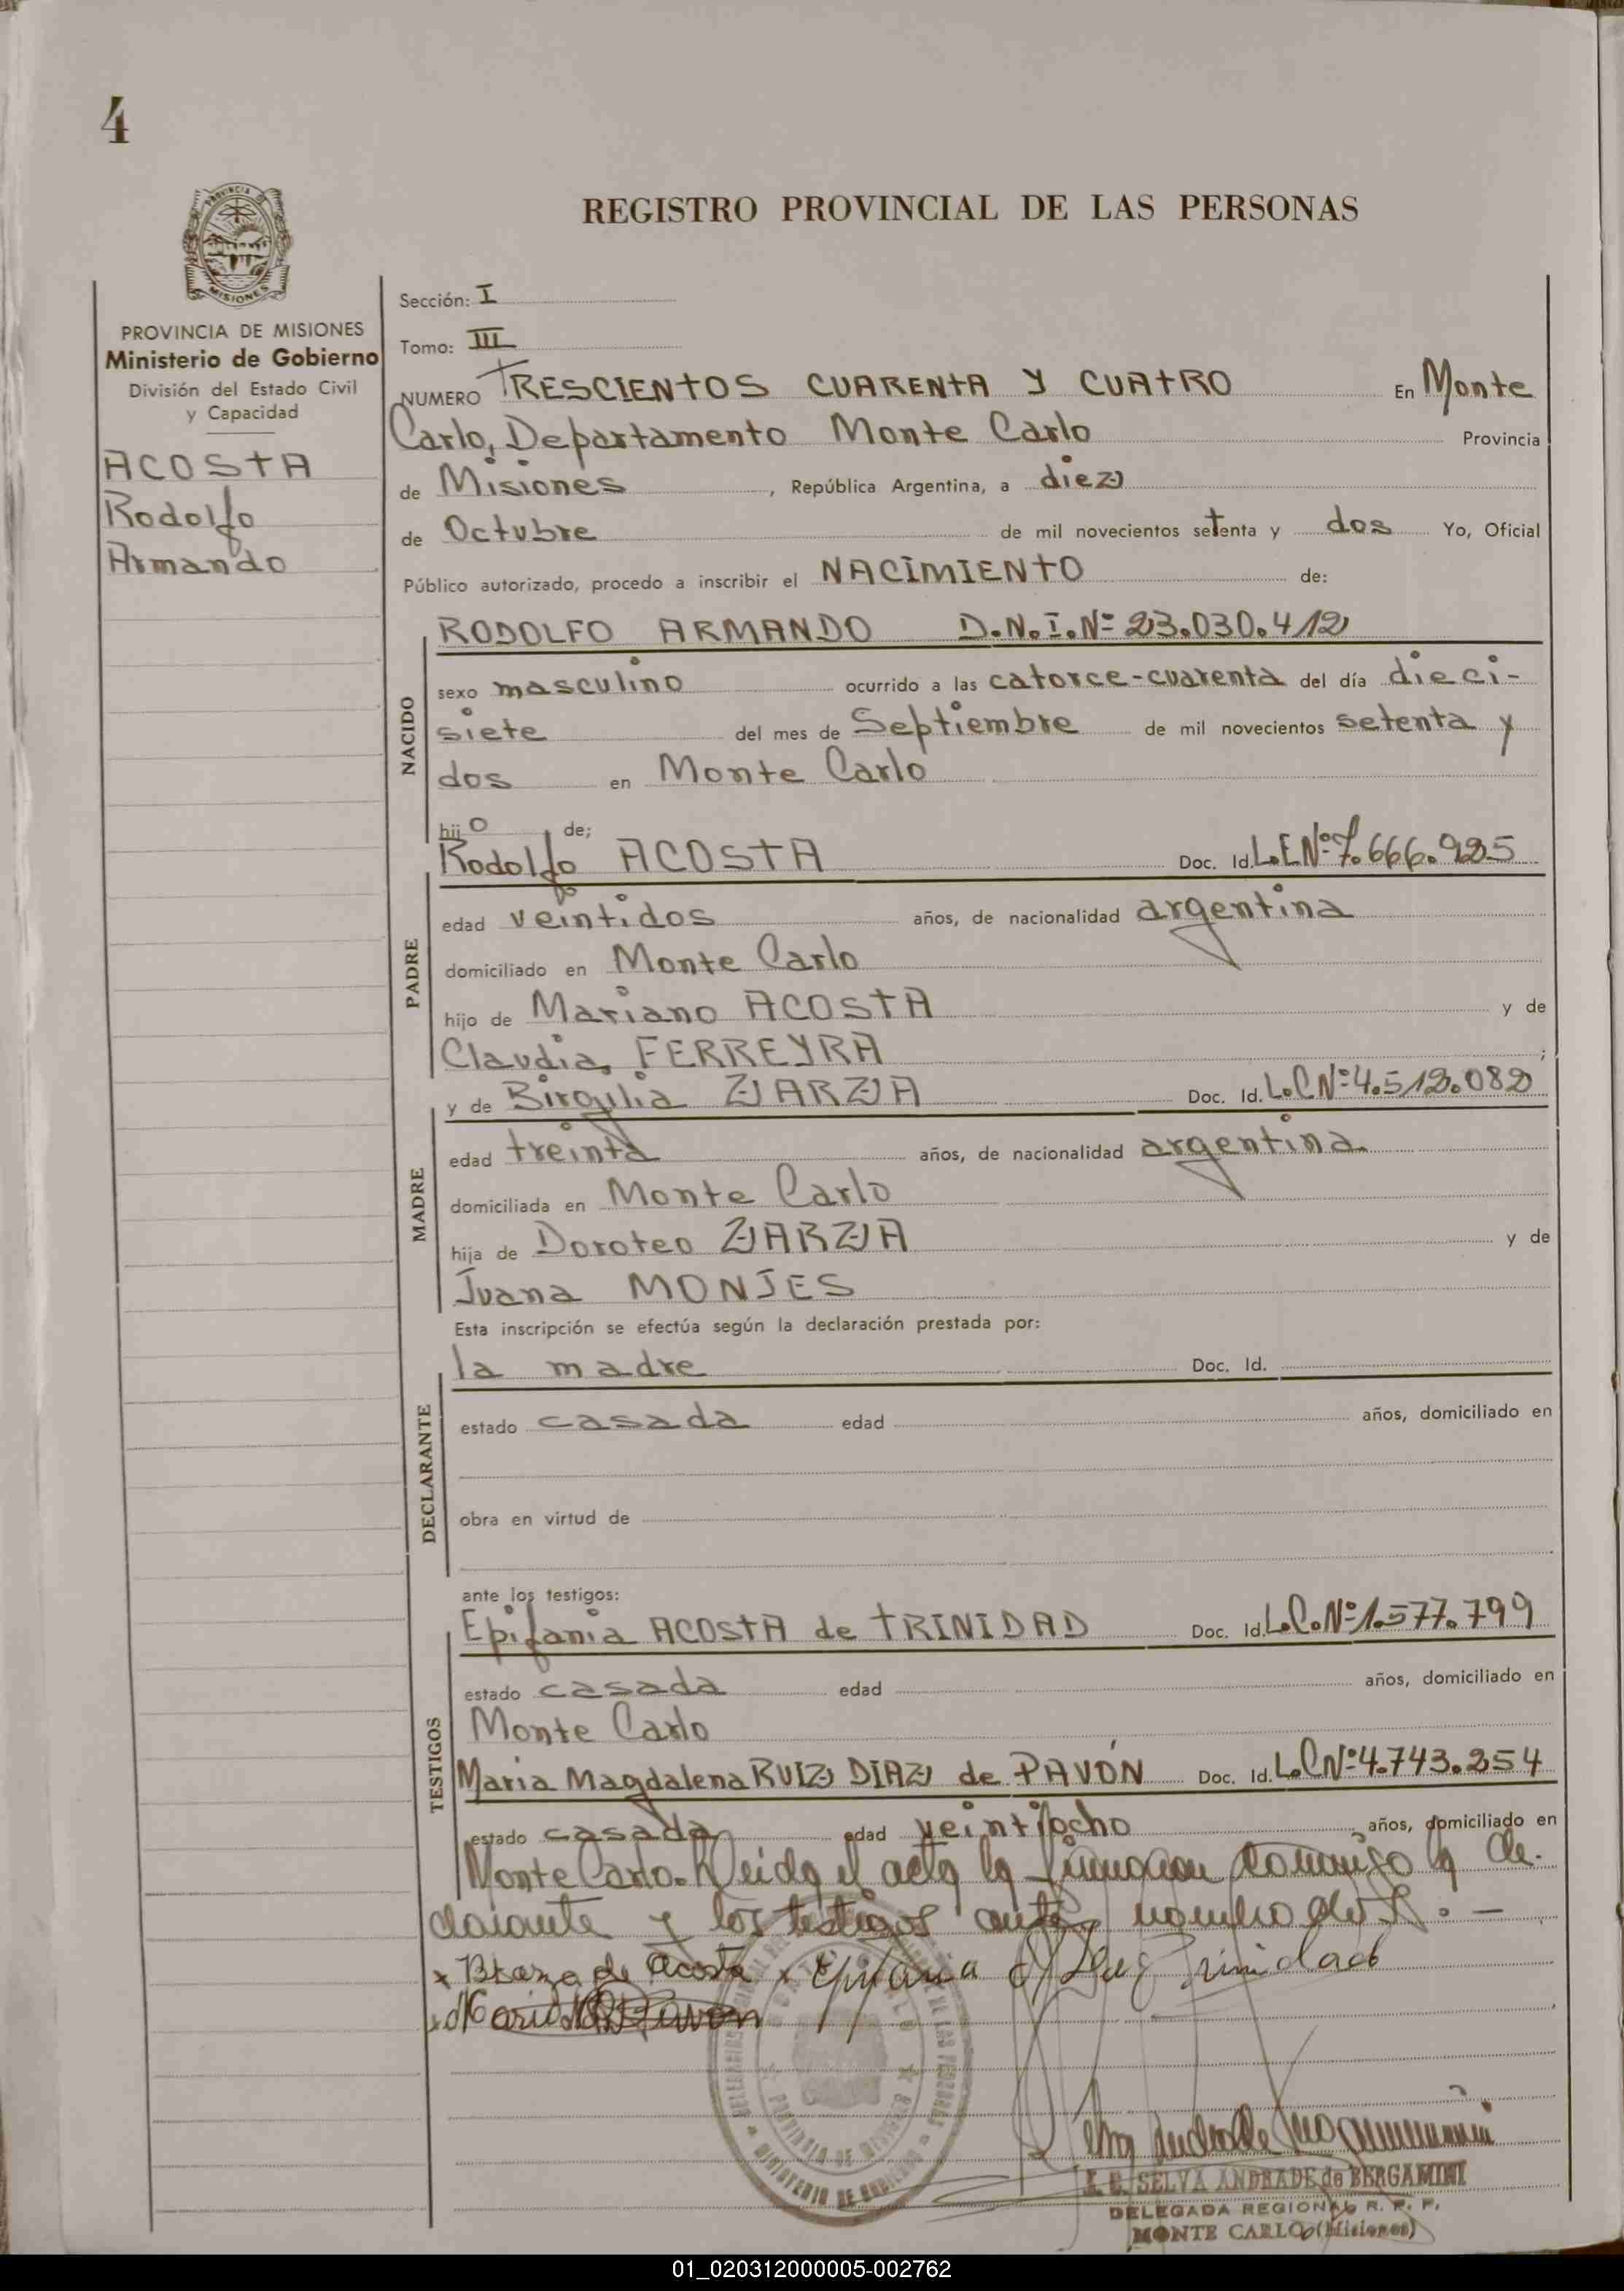 4
REGISTRO PROVINCIAL DE LAS PERSONAS
PROVINCIA
MISIONES
PROVINCIA DE MISIONES
Ministerio de Gobierno
División del Estado Civil
y Capacidad
ACOSTA
Rodolfo
Armando
Sección: I
Tomo: III
NUMERO TRESCIENTOS CUARENTA Y CUATRO En Monte
Carlo, Departamento Monte Carlo Provincia
de Misiones, República Argentina, a diez
de Octubre de mil novecientos setenta y dos Yo, Oficial
Público autorizado, procedo a inscribir el NACIMIENTO de:
NACIDO
RODOLFO ARMANDO D.N.I.Nº 23.030.412
sexo masculino ocurrido a las catorce-cuarenta del día dieci-
siete del mes de Septiembre de mil novecientos setenta y
dos en Monte Carlo
hijo de;
PADRE
Rodolfo ACOSTA Doc. Id. L.E.Nº 7.666.925
edad veintidos años, de nacionalidad argentina
domiciliado en Monte Carlo
hijo de Mariano ACOSTA y de
Claudia FERREYRA ;
MADRE
y de Birgilia ZARZA Doc. Id. L.C.Nº 4.512.082
edad treinta años, de nacionalidad argentina
domiciliada en Monte Carlo
hija de Doroteo ZARZA y de
Juana MONJES
Esta inscripción se efectúa según la declaración prestada por:
DECLARANTE
la madre Doc. Id.
estado casada edad años, domiciliado en
obra en virtud de
ante los testigos:
TESTIGOS
Epifania ACOSTA de TRINIDAD Doc. Id. L.C.Nº 1.577.799
estado casada edad años, domiciliado en
Monte Carlo
Maria Magdalena RUIZ DIAZ de PAVÓN Doc. Id. L.C.Nº 4.743.254
estado casada edad veintiocho años, domiciliado en
Monte Carlo. Leida el acta la firman conmigo la de-
clarante y los testigos antes nombrados.-
x Bzarza de Acosta x Epifania A de Trinidad
x Maria M R D Pavon
PROVINCIA DE MISIONES
MINISTERIO DE GOBIERNO
SELVA ANDRADE de BERGAMINI
DELEGADA REGIONAL R. P. P.
MONTE CARLO (Misiones)
01_020312000005-002762